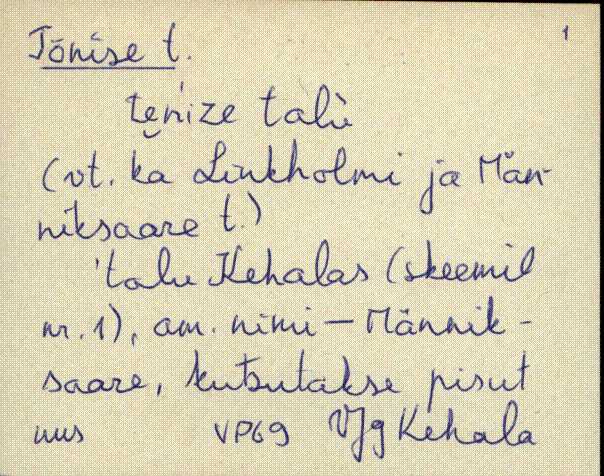 Tõnise t. 1
te̮ńize talù
(vt. ka Linkholmi ja Män-
niksaare t.)
'talu Kehalas (skeemil
nr. 1), am. nimi – Männik-
saare, kutsutakse pisut
uus VP69 VJg Kehala